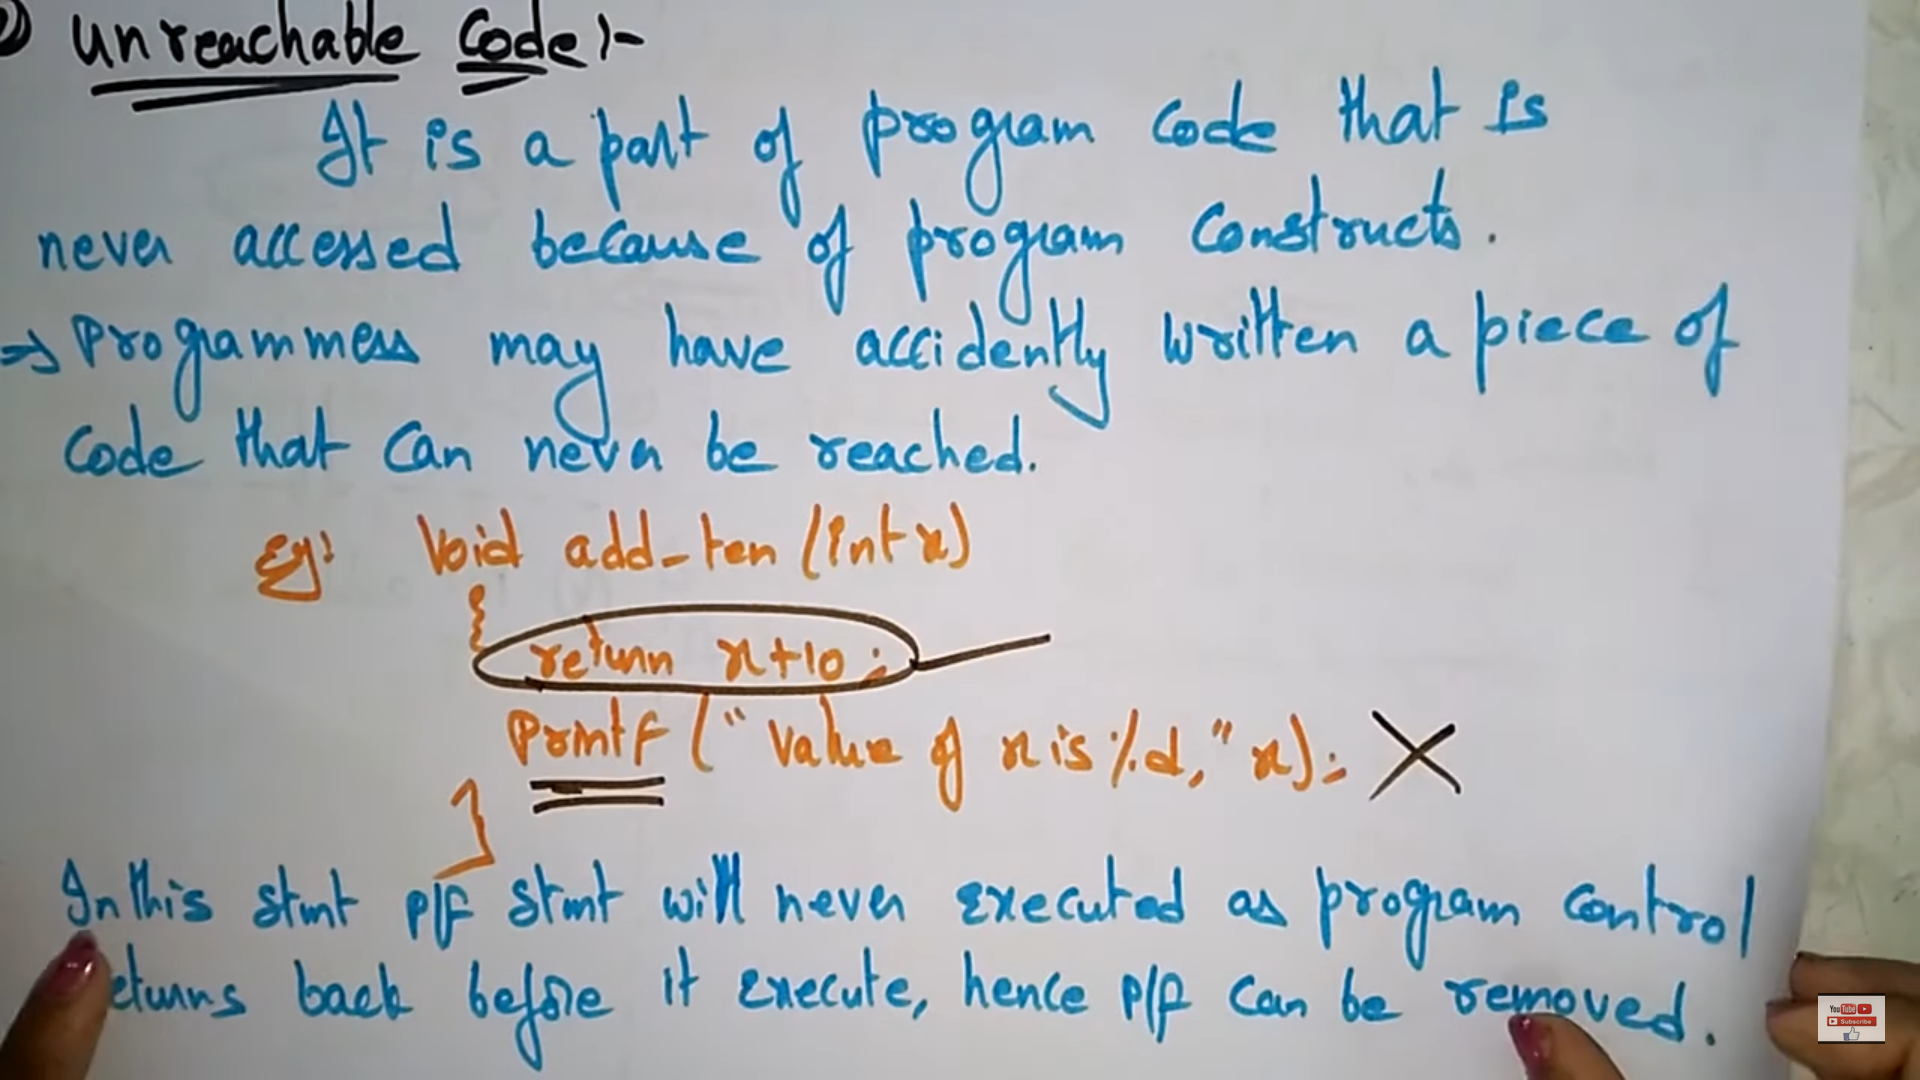 unreachable Code :-
It is a part of program code that is
never accessed because of program constructs.
⇒ Programmers may have accidently written a piece of
Code that can never be reached.
Eg: Void add_ten (int x)
{
return x+10;
Printf ("Value of x is %d," x);
}
In this stmt p/f stmt will never executed as program control
returns back before it execute, hence p/f can be removed.
YouTube
Subscribe